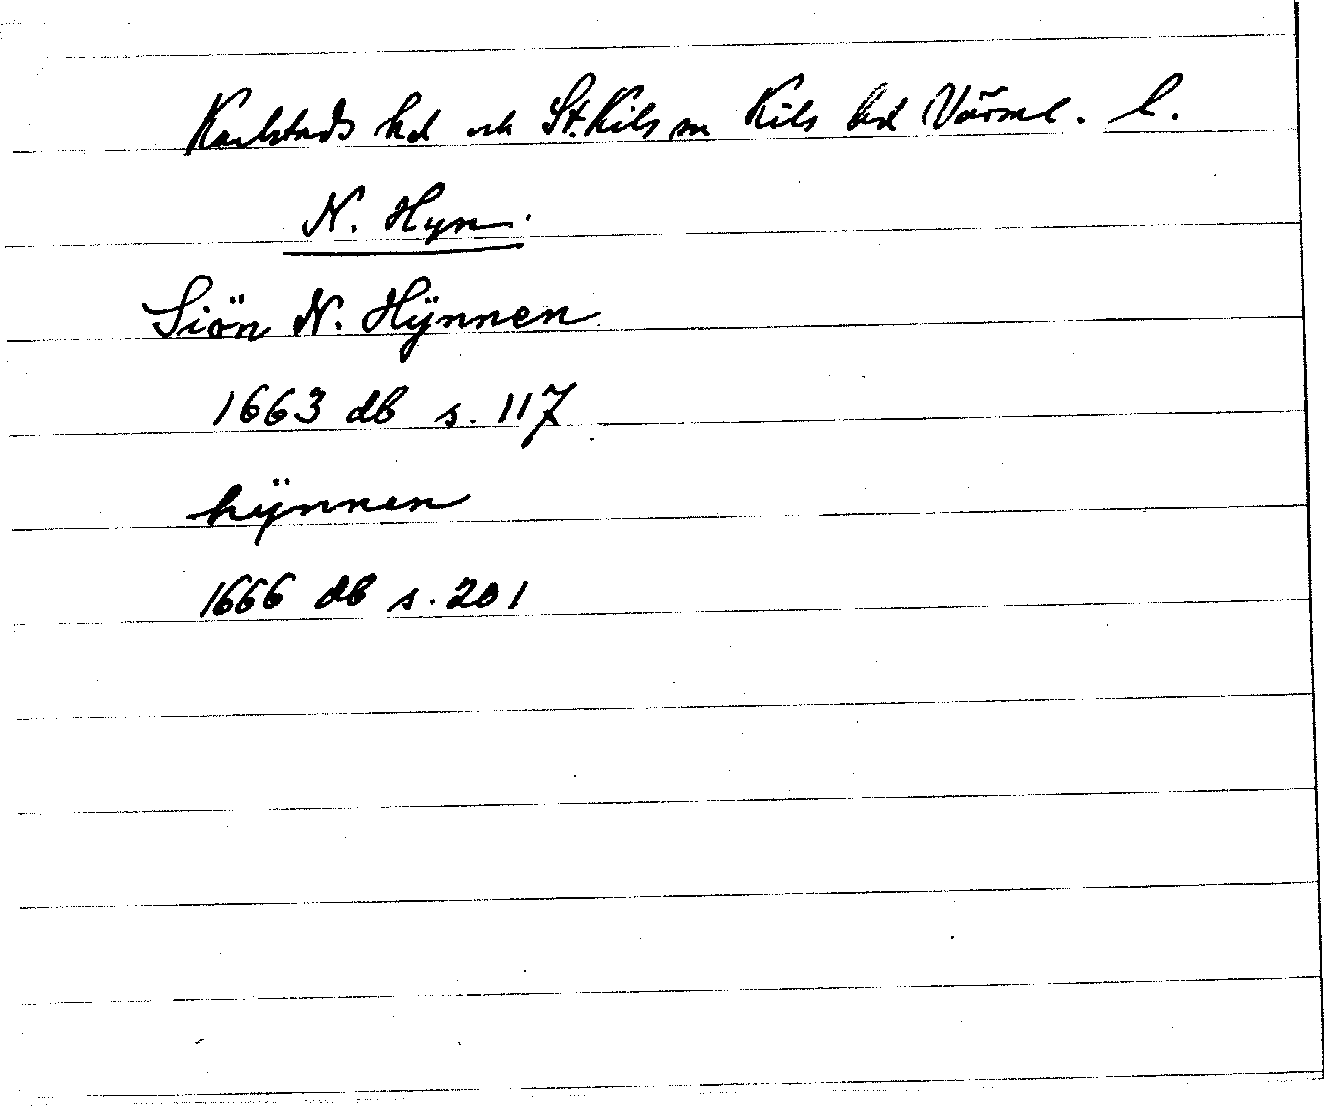 Karlstads hd och St. Kils sn Kils hd Värml. l.
N. Hyn.
Siön N. Hÿnnen
1663 db s. 117
hÿnnen
1666 db s. 201